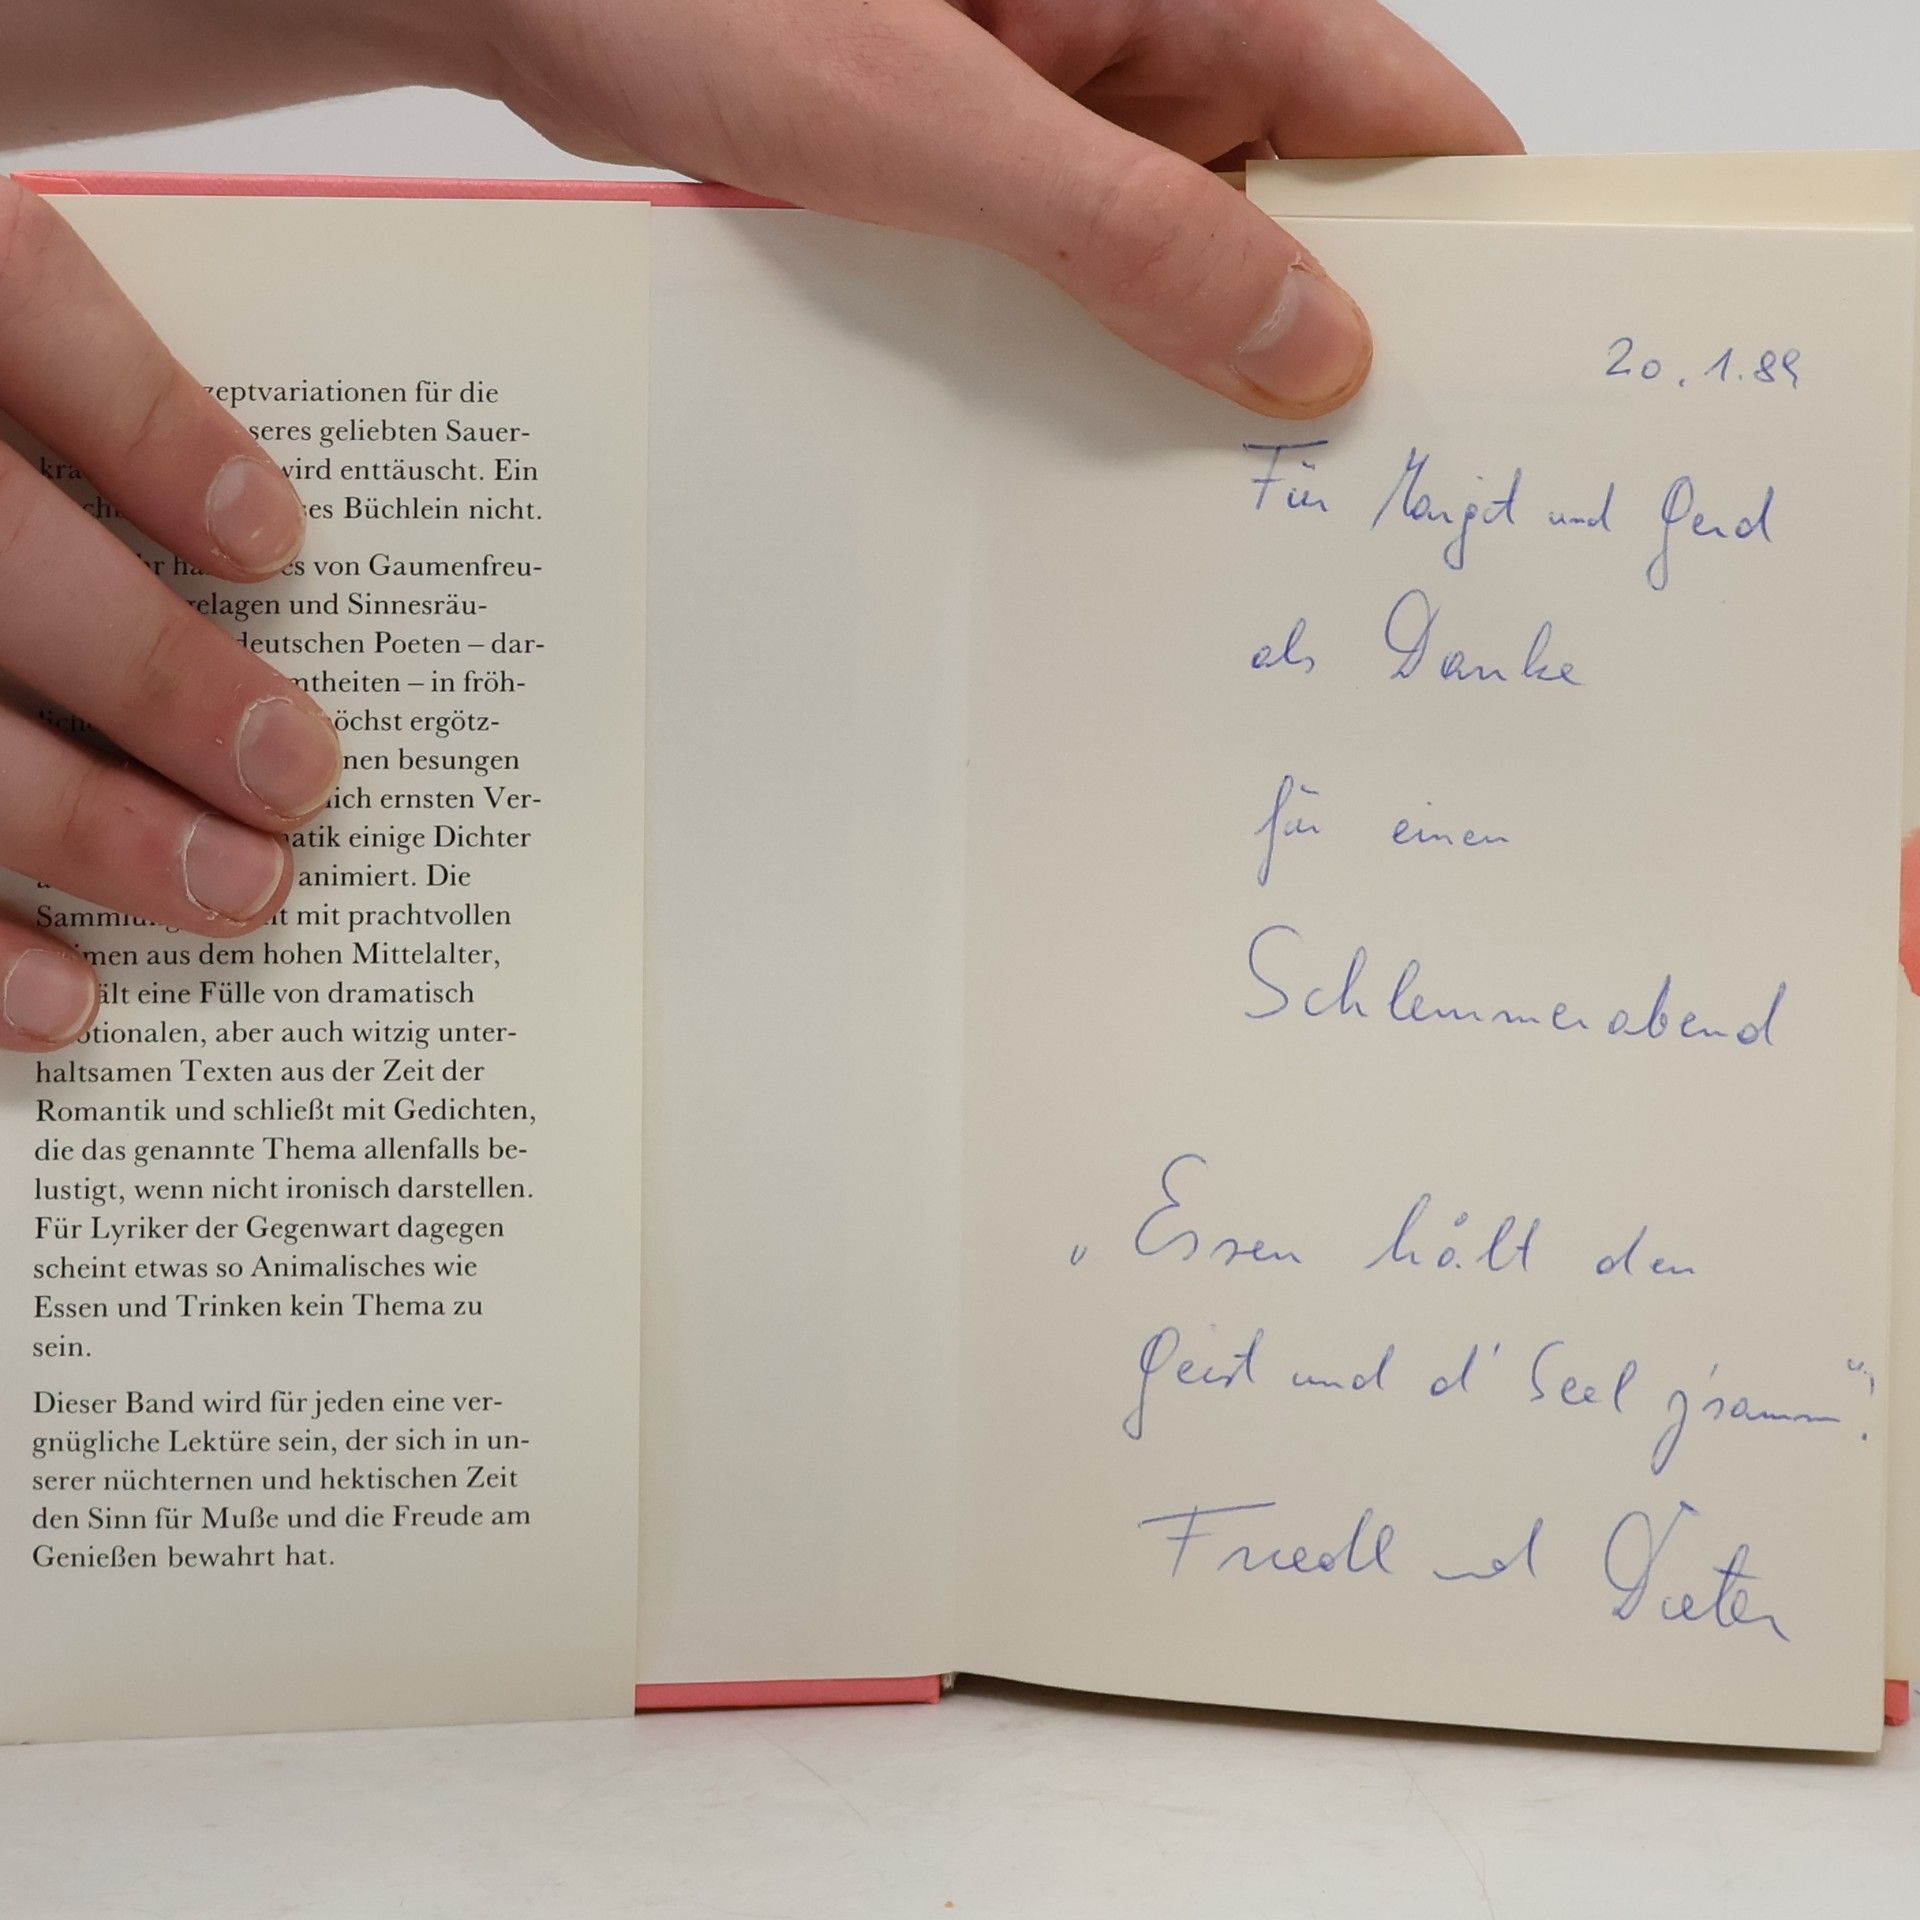 für die
geliebten Sauer-
wird enttäuscht. Ein
Büchlein nicht.
von Gaumenfreu-
und Sinnesräu-
deutschen Poeten – dar-
– in fröh-
ergötz-
besungen
ernsten Ver-
einige Dichter
animiert. Die
mit prachtvollen
aus dem hohen Mittelalter,
eine Fülle von dramatisch
aber auch witzig unter-
haltsamen Texten aus der Zeit der
Romantik und schließt mit Gedichten,
die das genannte Thema allenfalls be-
lustigt, wenn nicht ironisch darstellen.
Für Lyriker der Gegenwart dagegen
scheint etwas so Animalisches wie
Essen und Trinken kein Thema zu
sein.
Dieser Band wird für jeden eine ver-
gnügliche Lektüre sein, der sich in un-
serer nüchternen und hektischen Zeit
den Sinn für Muße und die Freude am
Genießen bewahrt hat.
20.1.89
Für Margit und Gerd
als Danke
für einen
Schlemmerabend
„Essen hält den
Geist und d' Seel z'samm".
Friedl und Dieter